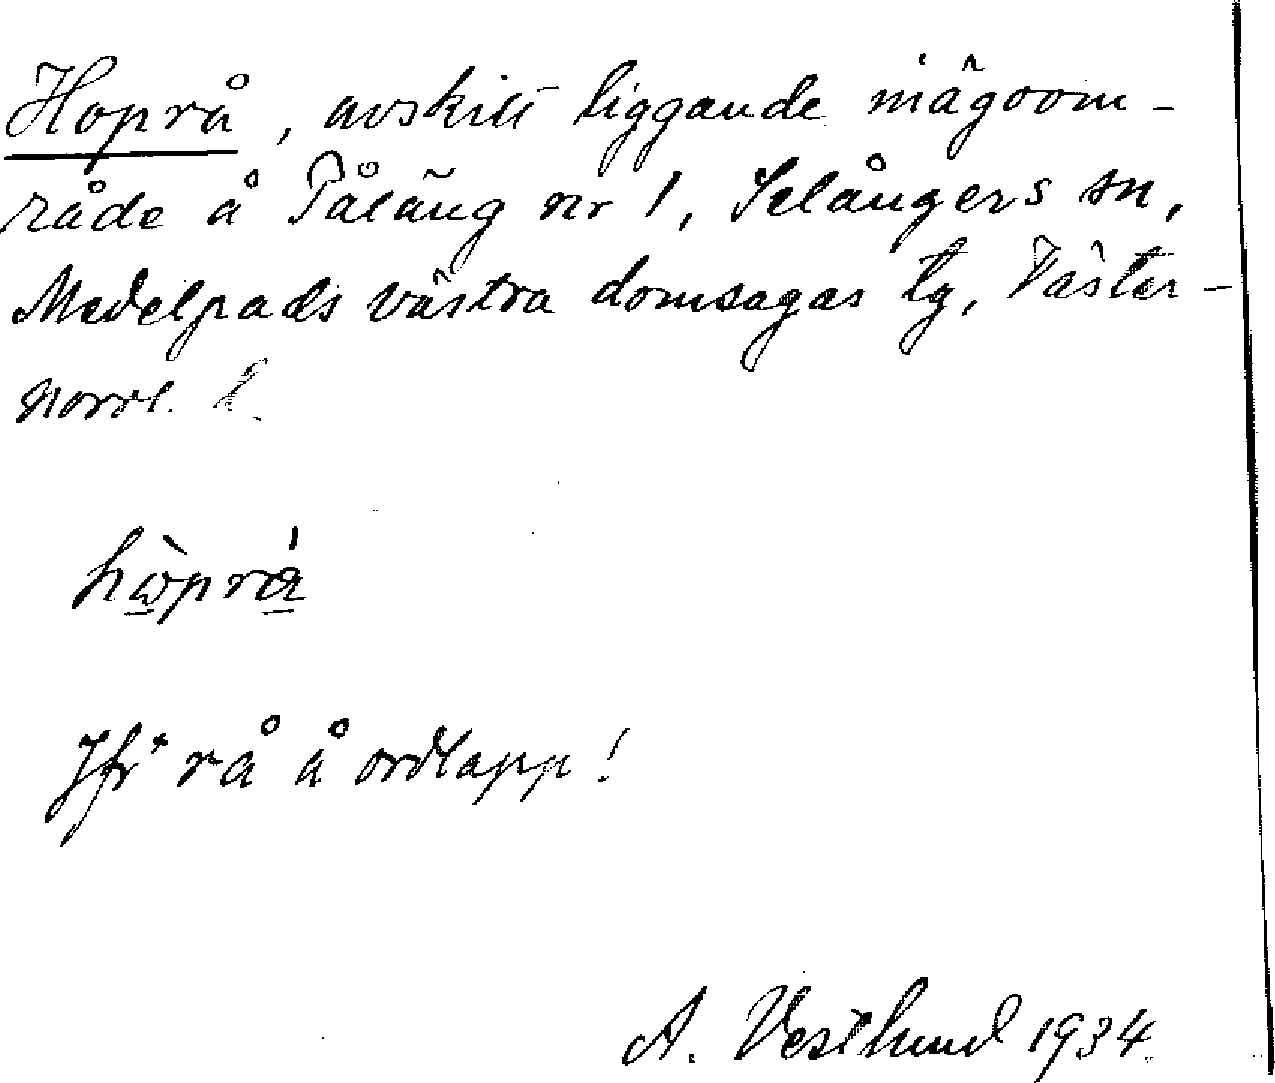 Hoprå, avskilt liggande inägoom-
råde å Påläng nr 1, Selångers sn,
Medelpads västra domsagas tg, Väster-
norrl. l.
hòprá
Jfr rå å ordlapp!
A. Vestlund 1934.